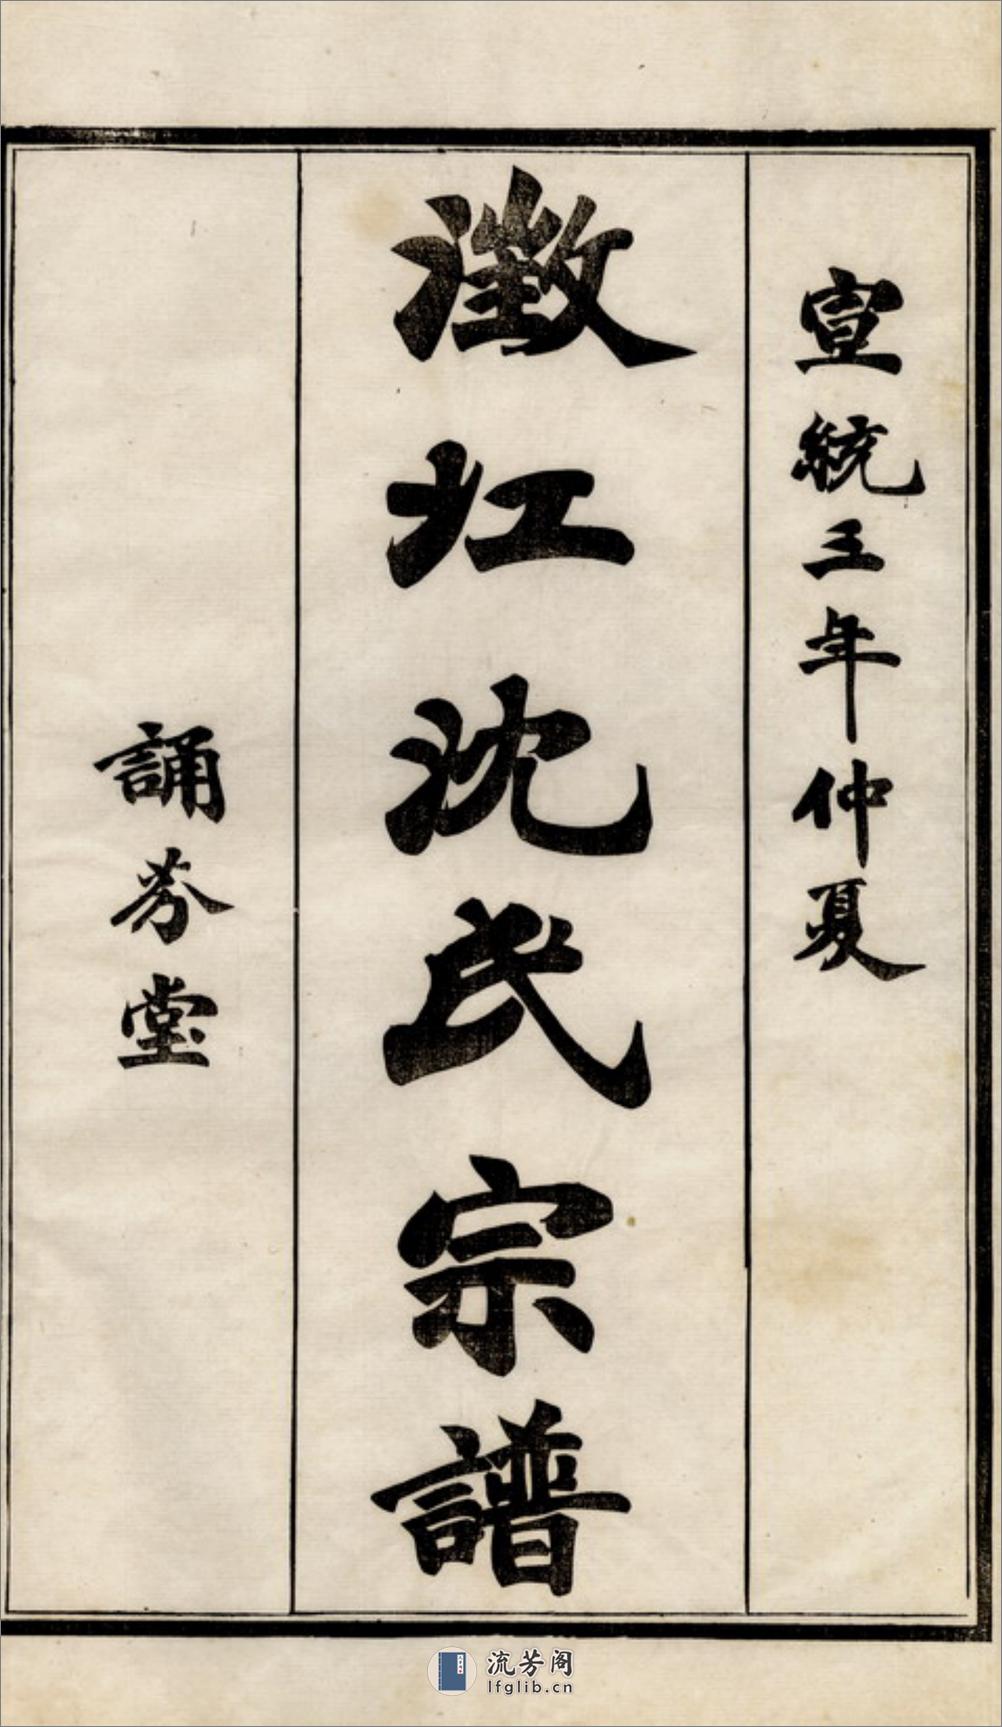 宣統三年仲夏
澂江沈氏宗譜
誦芬堂
流芳阁
lfglib.cn